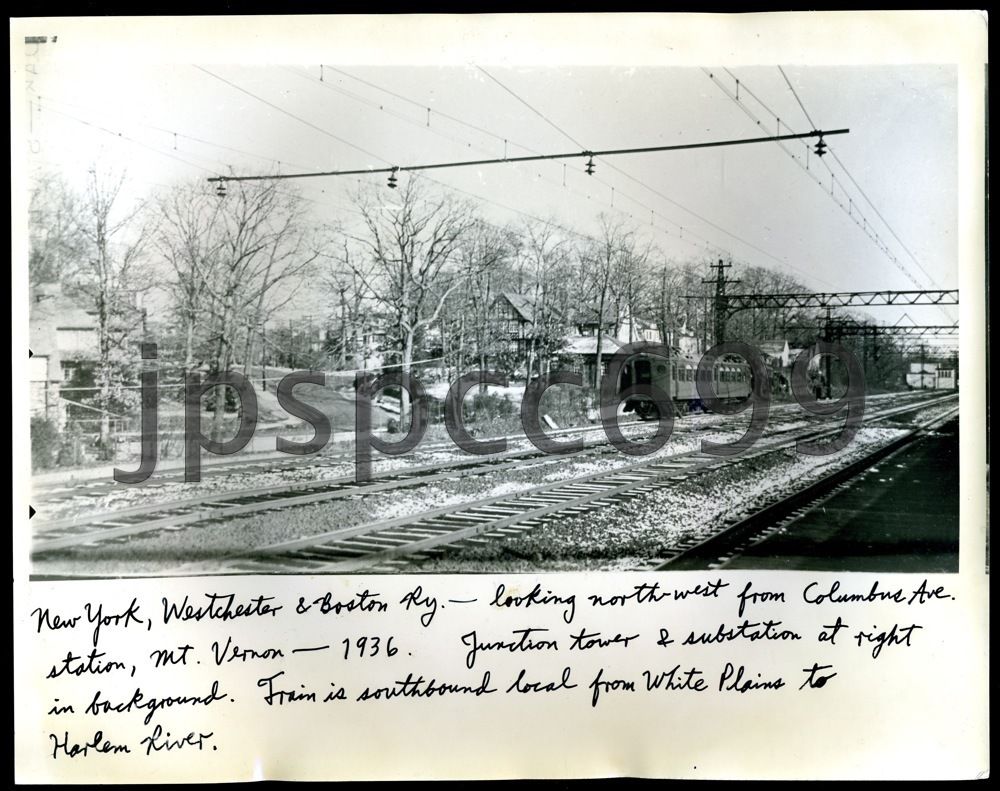 jpspcc699
New York, Westchester & Boston Ry. — looking north-west from Columbus Ave.
station, Mt. Vernon — 1936. Junction tower & substation at right
in background. Train is southbound local from White Plains to
Harlem River.